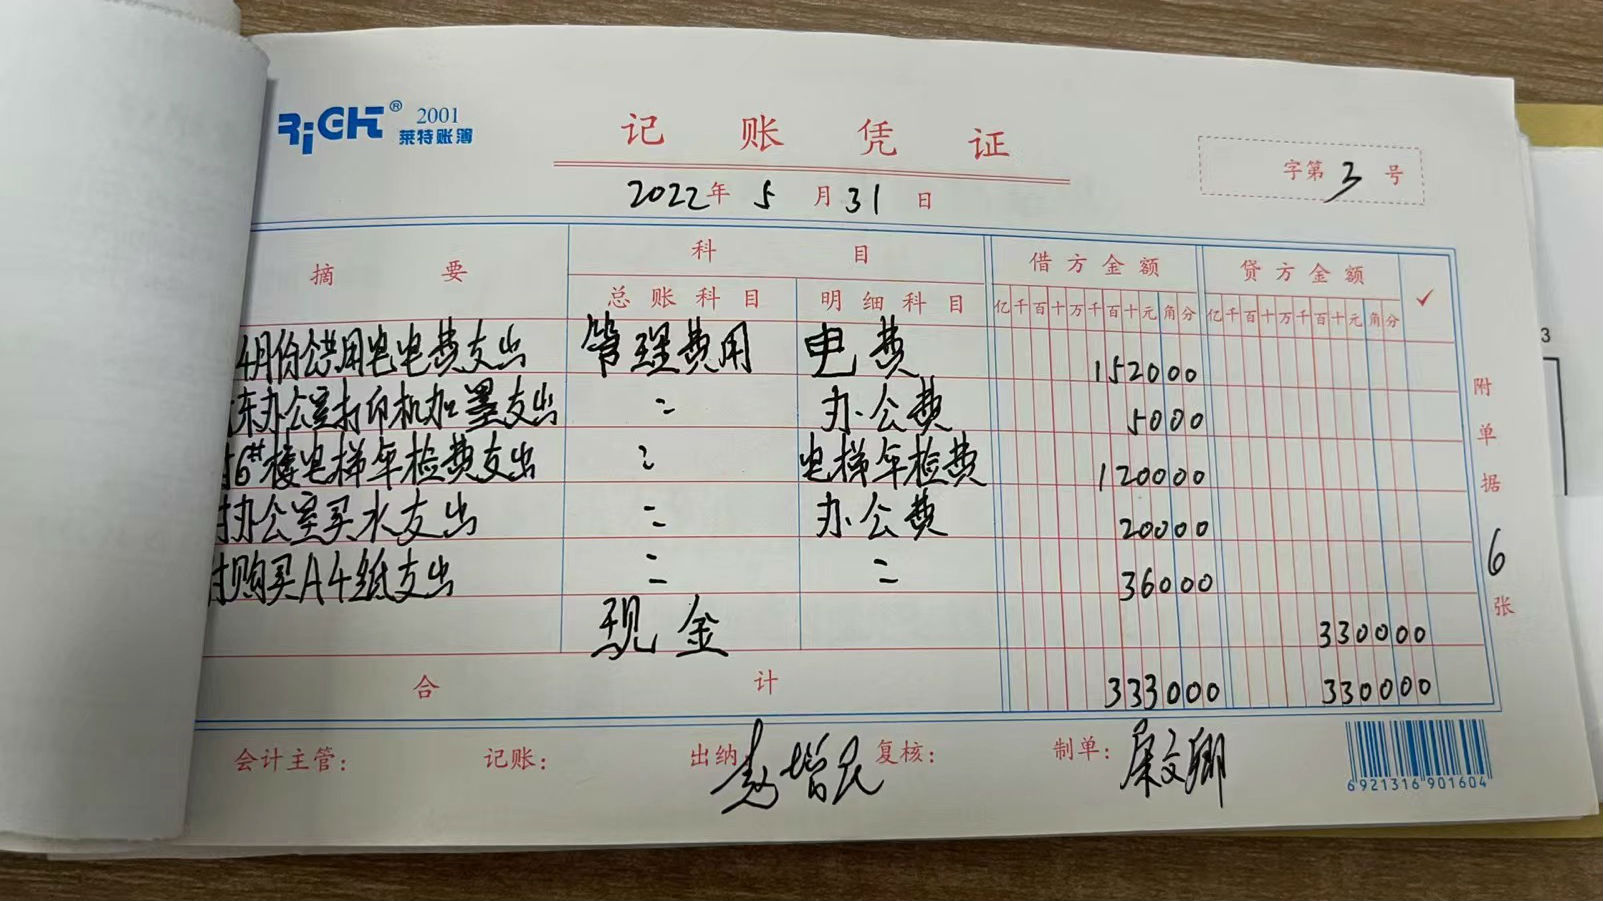 RiGHT® 2001
莱特账簿
记账凭证
字第3号
2022年5月31日
摘要 科目 借方金额 贷方金额 ✓
总账科目 明细科目 亿千百十万千百十元角分 亿千百十万千百十元角分
4月份公共用电电费支出 管理费用 电费 152000
东办公室打印机加墨支出 〃 办公费 5000
付6#楼电梯年检费支出 〃 电梯年检费 120000
付办公室买水支出 〃 办公费 20000
付购买A4纸支出 〃 〃 36000
现金 330000
合计 333000 330000
附单据6张
会计主管: 记账: 出纳 赵增民 复核: 制单:
6921316 901604
3